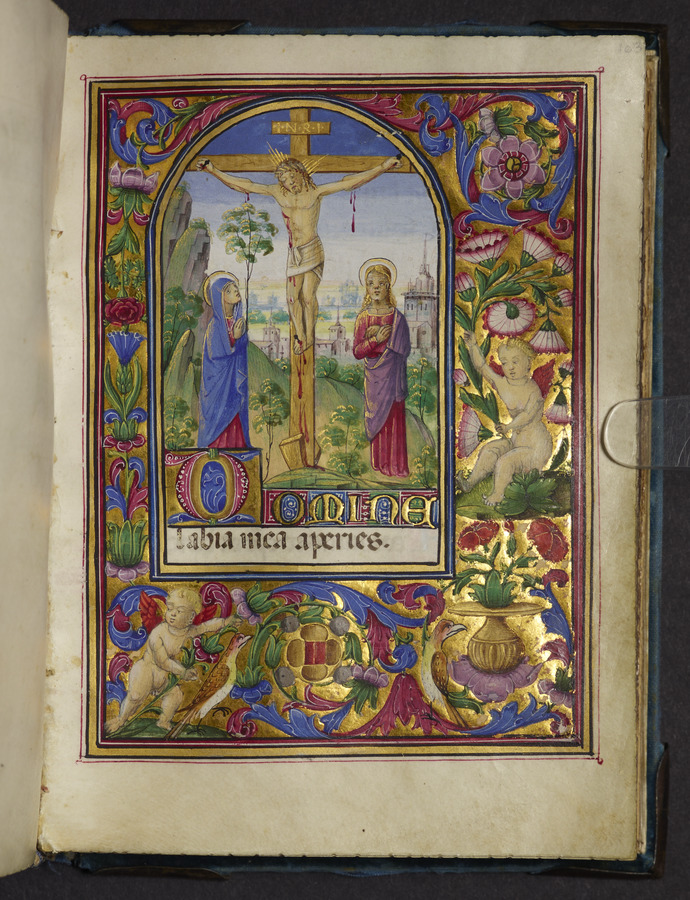 I·N·R·I
DOMINE
labia mea aperies.